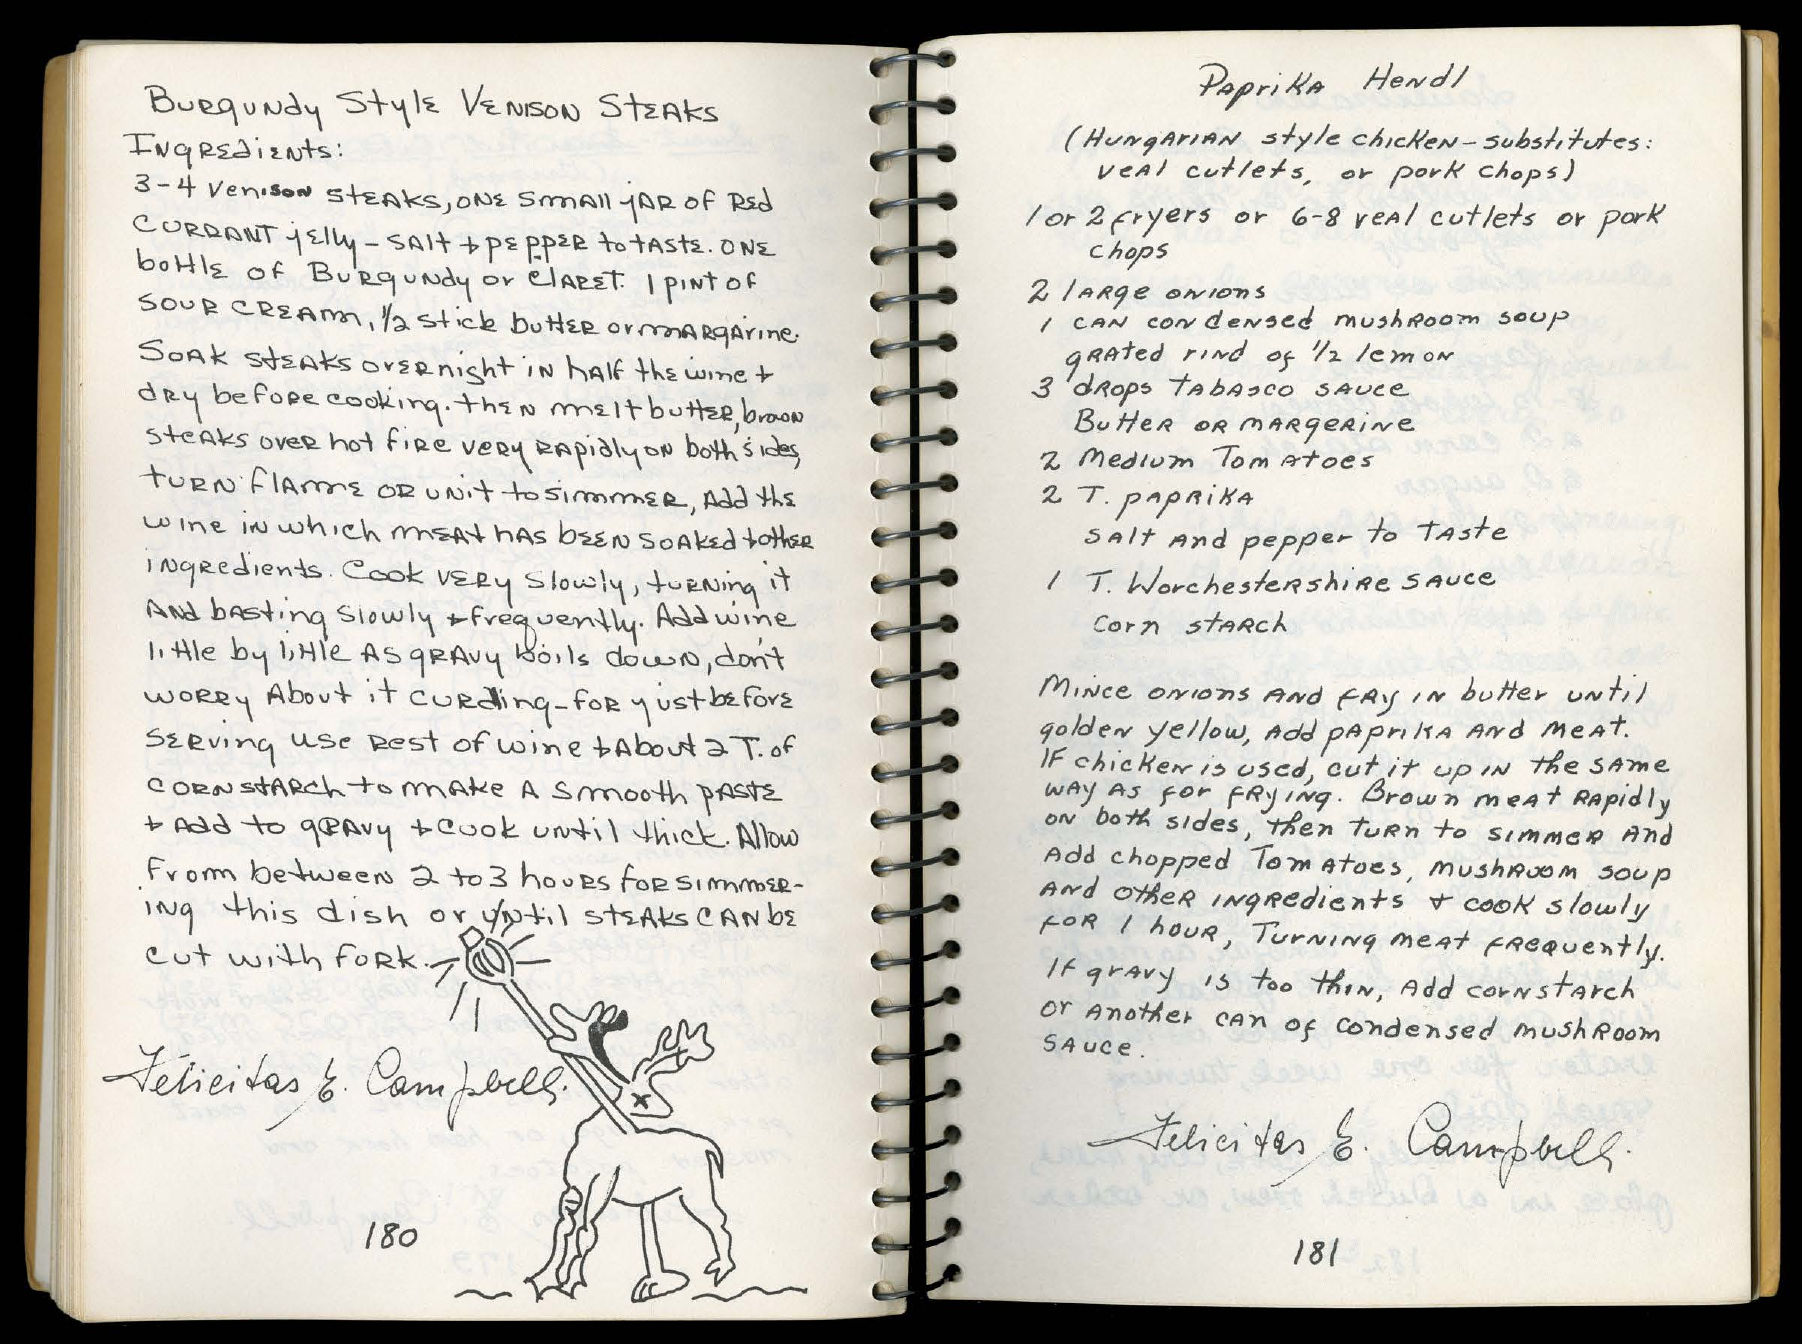 Burgundy Style Venison Steaks
Ingredients:
3-4 Venison steaks, one small jar of Red
Currant jelly - salt & pepper to taste. One
bottle of Burgundy or Claret. 1 pint of
sour cream, 1/2 stick butter or margarine.
Soak steaks overnight in half the wine &
dry before cooking. Then melt butter, brown
steaks over hot fire very rapidly on both sides,
turn flame or unit to simmer, Add the
wine in which meat has been soaked & other
ingredients. Cook very slowly, turning it
and basting slowly & frequently. Add wine
little by little as gravy boils down, don't
worry About it curdling - for just before
serving use rest of wine & About 2 T. of
cornstarch to make a smooth paste
& Add to gravy & cook until thick. Allow
from between 2 to 3 hours for simmer-
ing this dish or until steaks can be
cut with fork.
Felicitas E. Campbell.
180
Paprika Hendl
(Hungarian style chicken - substitutes:
veal cutlets, or pork chops)
1 or 2 fryers or 6-8 veal cutlets or pork
chops
2 large onions
1 can condensed mushroom soup
grated rind of 1/2 lemon
3 drops Tabasco sauce
Butter or margerine
2 Medium Tomatoes
2 T. paprika
salt and pepper to Taste
1 T. Worchestershire sauce
corn starch
Mince onions and fry in butter until
golden yellow, add paprika and meat.
If chicken is used, cut it up in the same
way as for frying. Brown meat rapidly
on both sides, then turn to simmer and
add chopped Tomatoes, mushroom soup
and other ingredients & cook slowly
for 1 hour, Turning meat frequently.
If gravy is too thin, add cornstarch
or another can of condensed mushroom
sauce.
Felicitas E. Campbell.
181